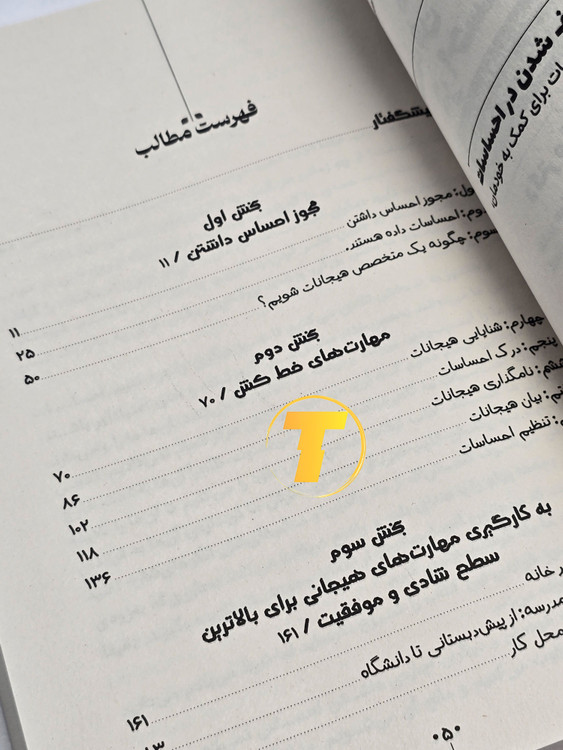 فهرست مطالب
یشگفتار
بخش اول
مجوز احساس داشتن / ۱۱
اول: مجوز احساس داشتن ۱۱
دوم: احساسات داده هستند. ۲۵
سوم: چگونه یک متخصص هیجانات شویم؟ ۵۰
بخش دوم
مهارت‌های خط کش / ۷۰
چهارم: شناسایی هیجانات ۷۰
پنجم: درک احساسات ۸۶
نامگذاری هیجانات ۱۰۲
بیان هیجانات ۱۱۸
تنظیم احساسات ۱۳۶
بخش سوم
به کارگیری مهارت‌های هیجانی برای بالاترین
سطح شادی و موفقیت / ۱۶۱
خانه ۱۶۱
مدرسه: از پیش‌دبستانی تا دانشگاه
محل کار
۰۵۰
شدن در احساسات
برای کمک به خودمان،
T